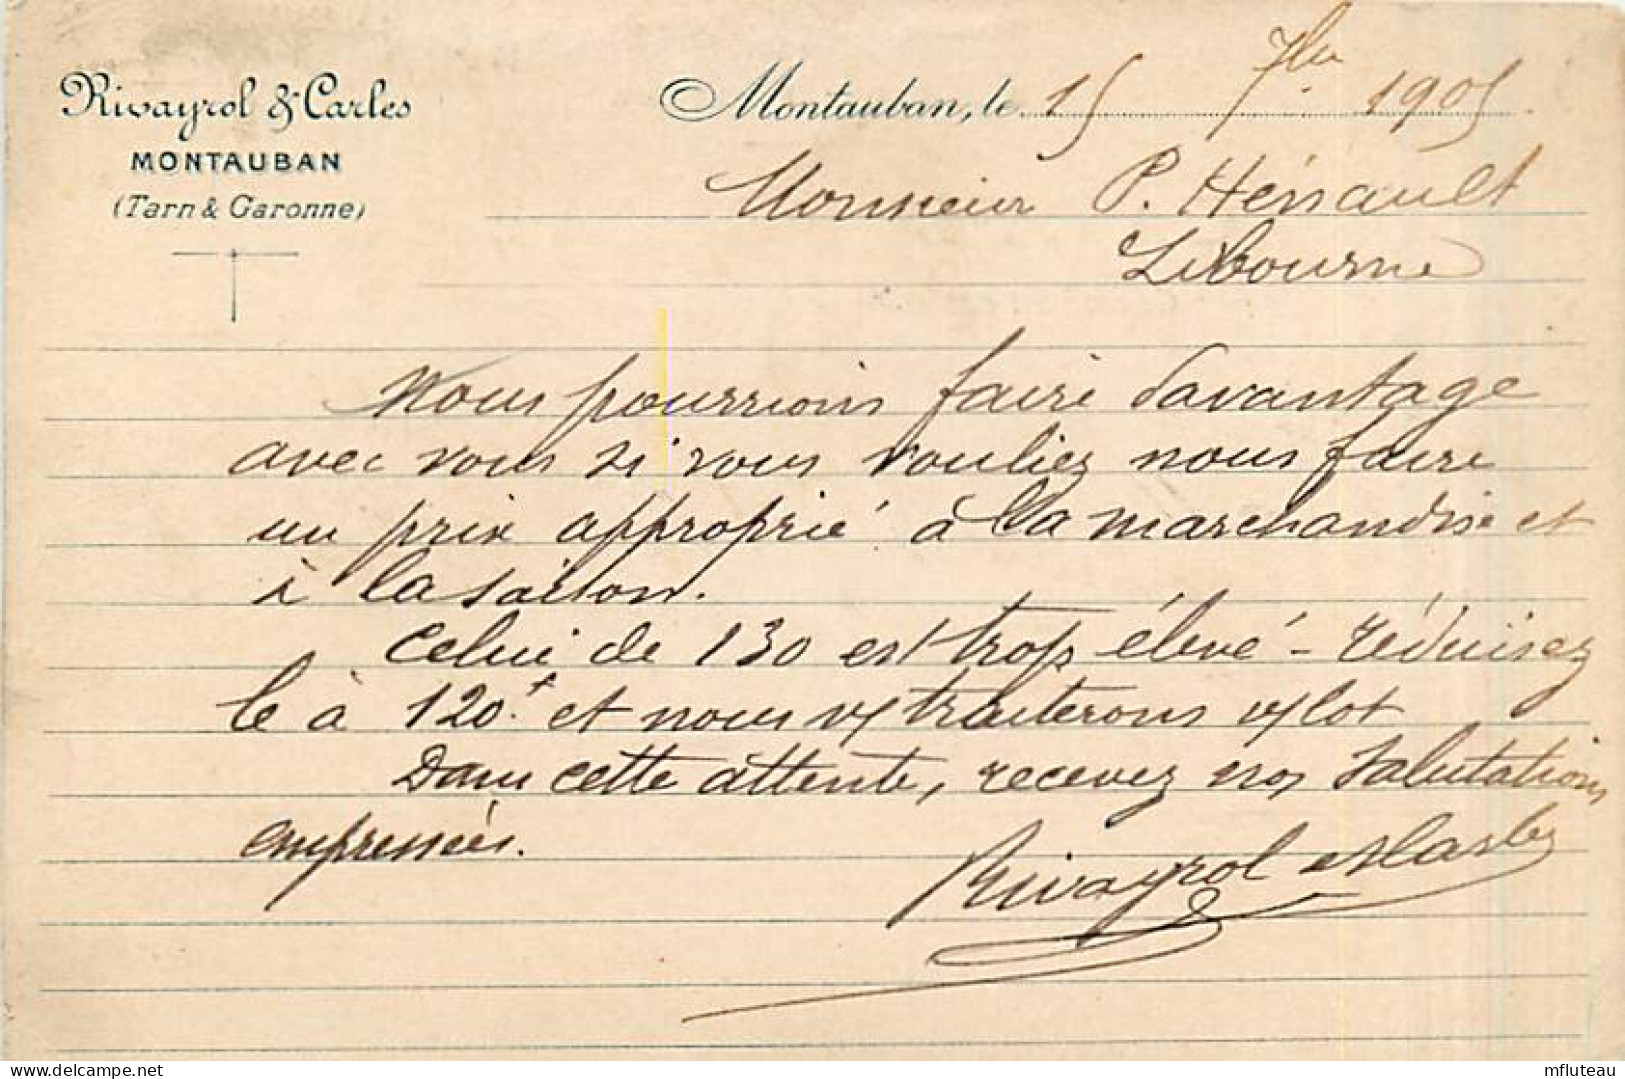 Rivayrol & Carles
MONTAUBAN
(Tarn & Garonne)
Montauban, le 15 7bre 1905
Monsieur P. Hérault
Libourne
Nous pourrions faire davantage
avec vous si vous vouliez nous faire
un prix approprié à la marchandise et
à la saison.
Celui de 130 est trop élevé - réduisez
le à 120f. et nous traiterons lot
Dans cette attente, recevez nos salutations
empressées.
Rivayrol et Carles
Delcampe.net
mfluteau